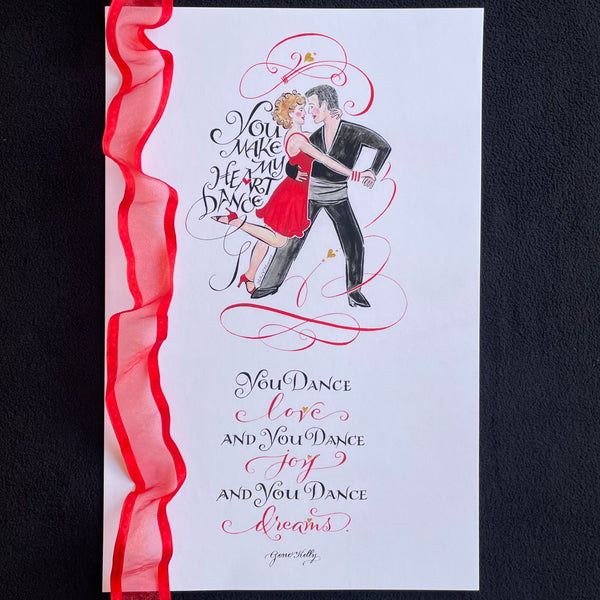 You
MAKE
MY
HEART
DANCE
You DANCE
love
AND You DANCE
joy
AND You DANCE
dreams.
Gene Kelly